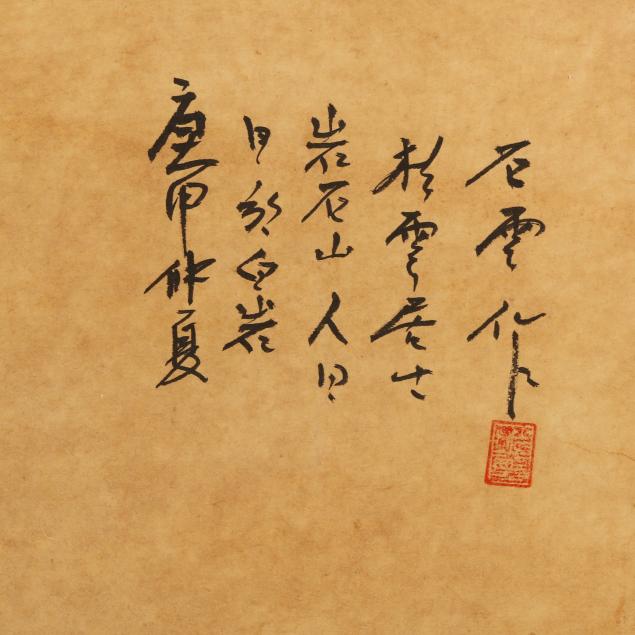 庚申仲夏
日於白岩
岩石山人日
松雲居士
石雲作